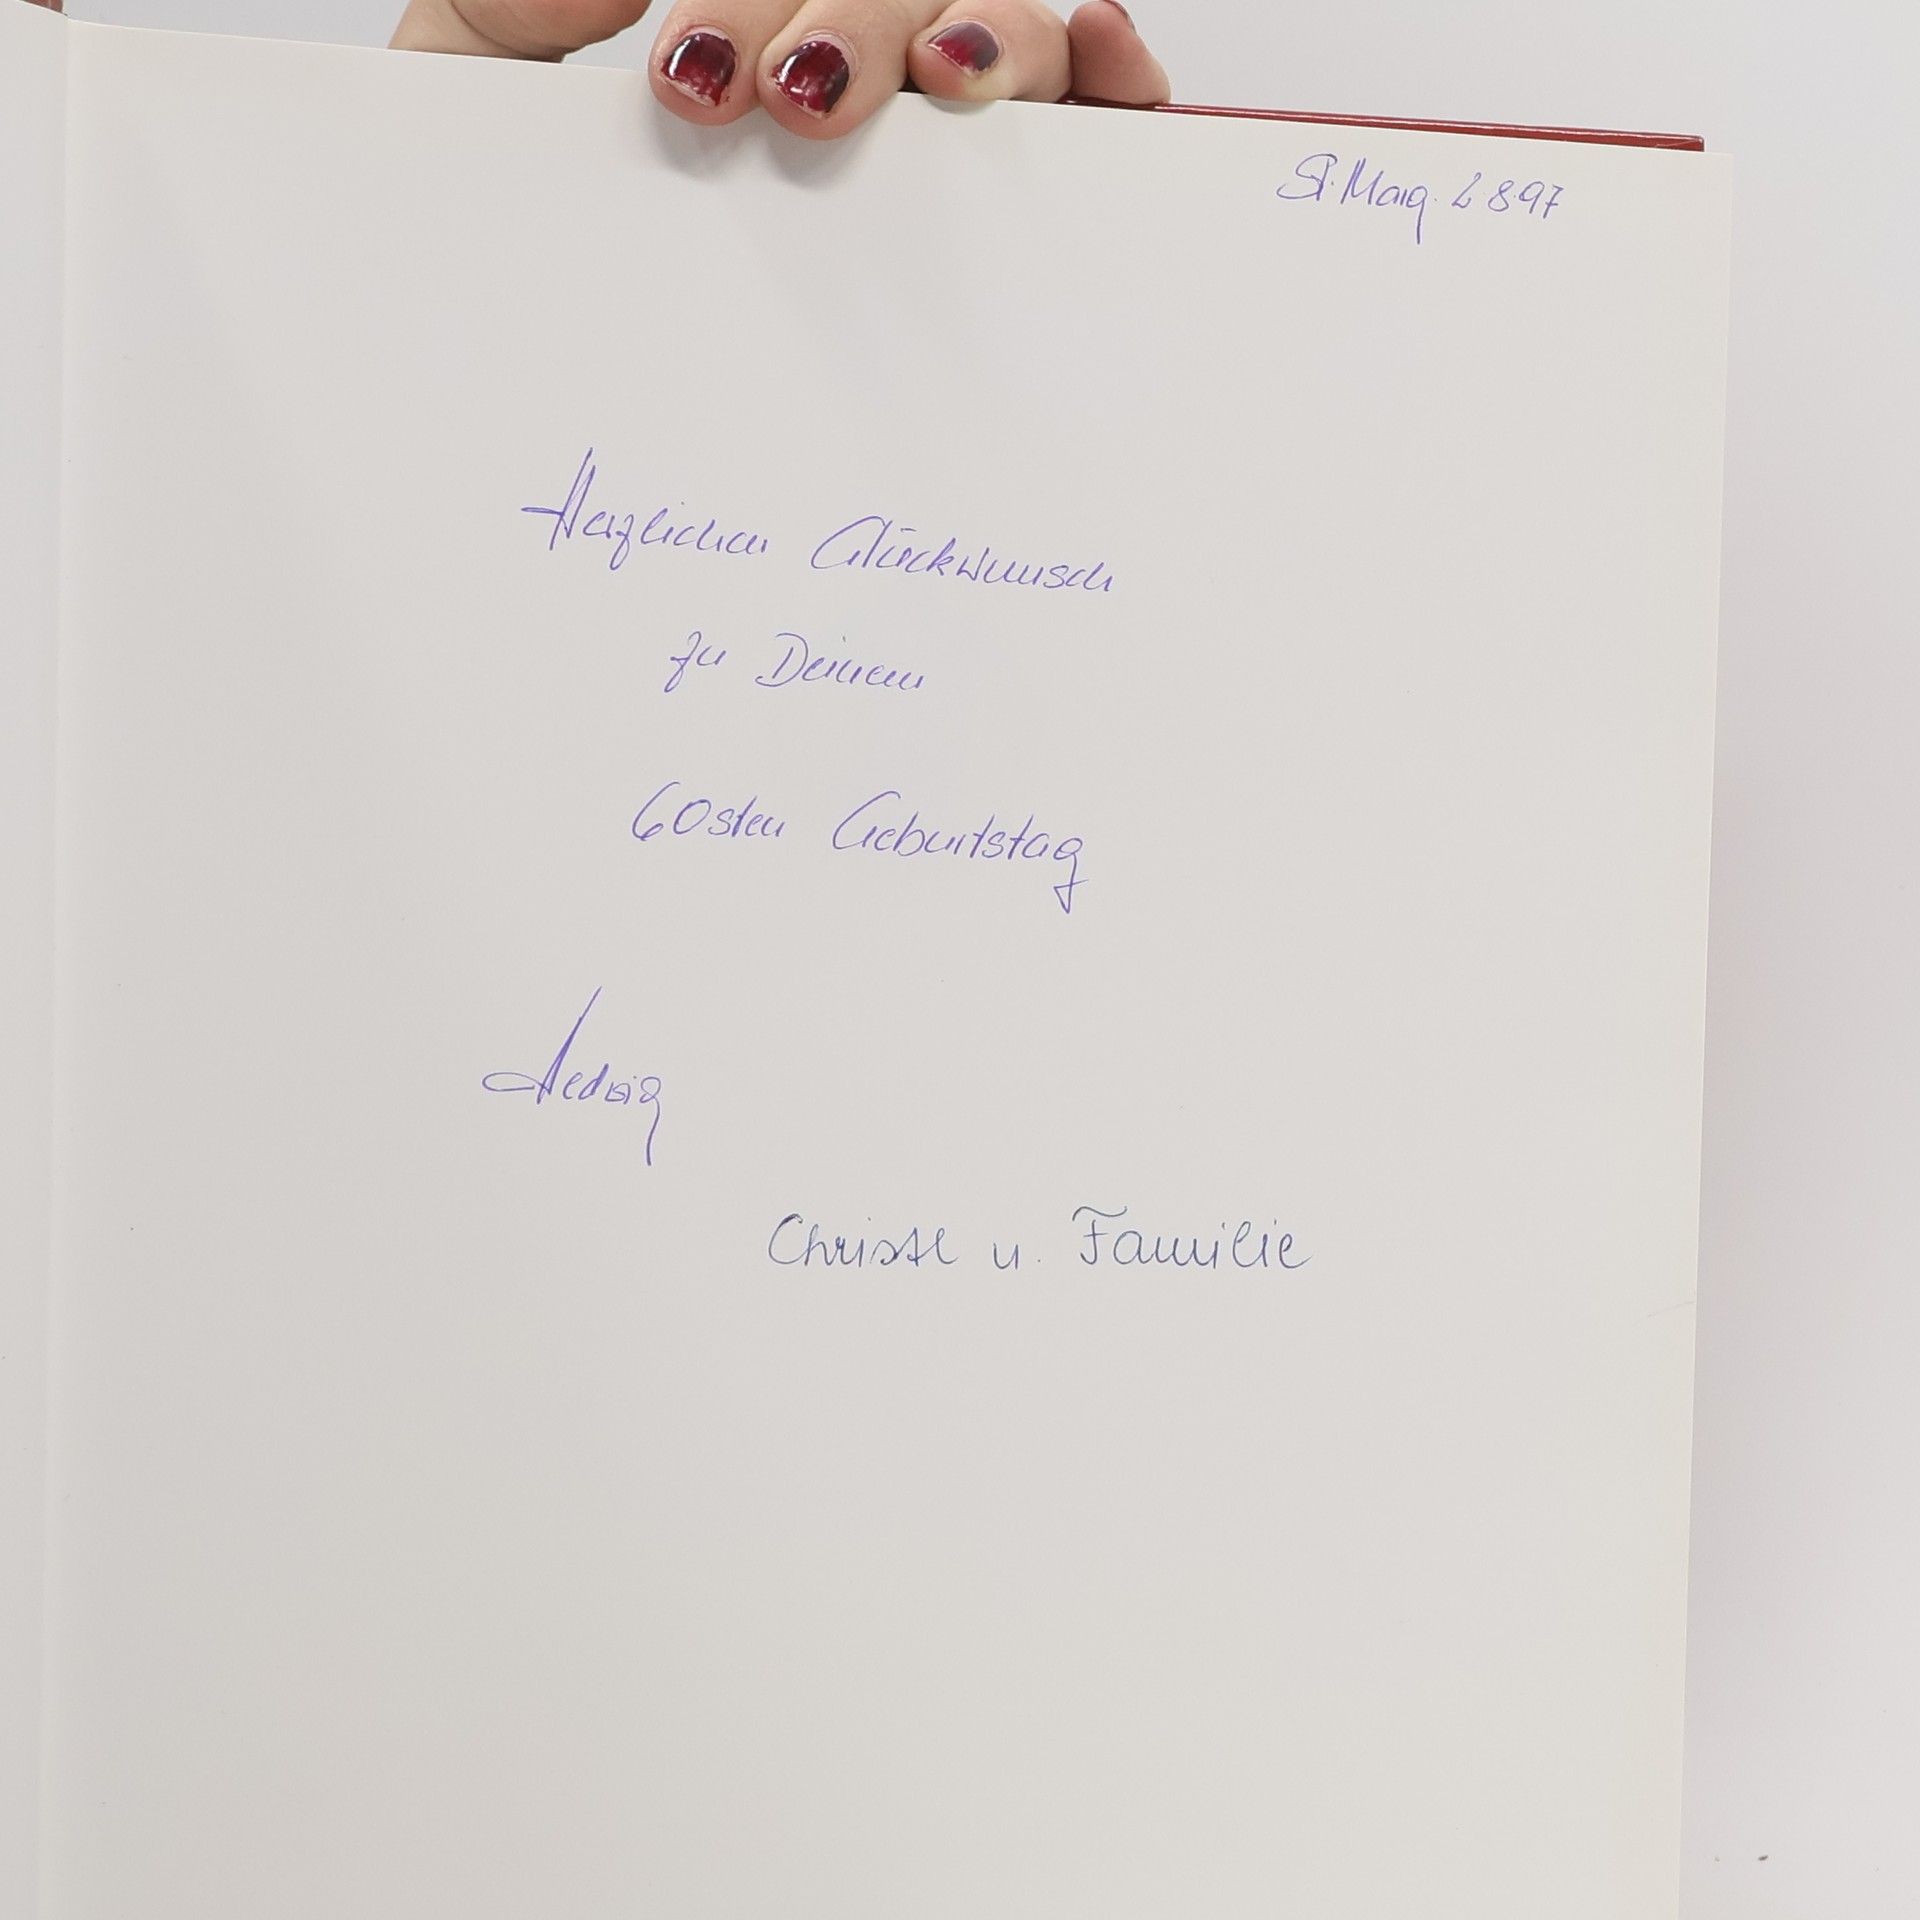 St. Marg. 2.8.97
Herzlichen Glückwunsch
zu Deinem
60sten Geburtstag
Hedwig
Christl u. Familie